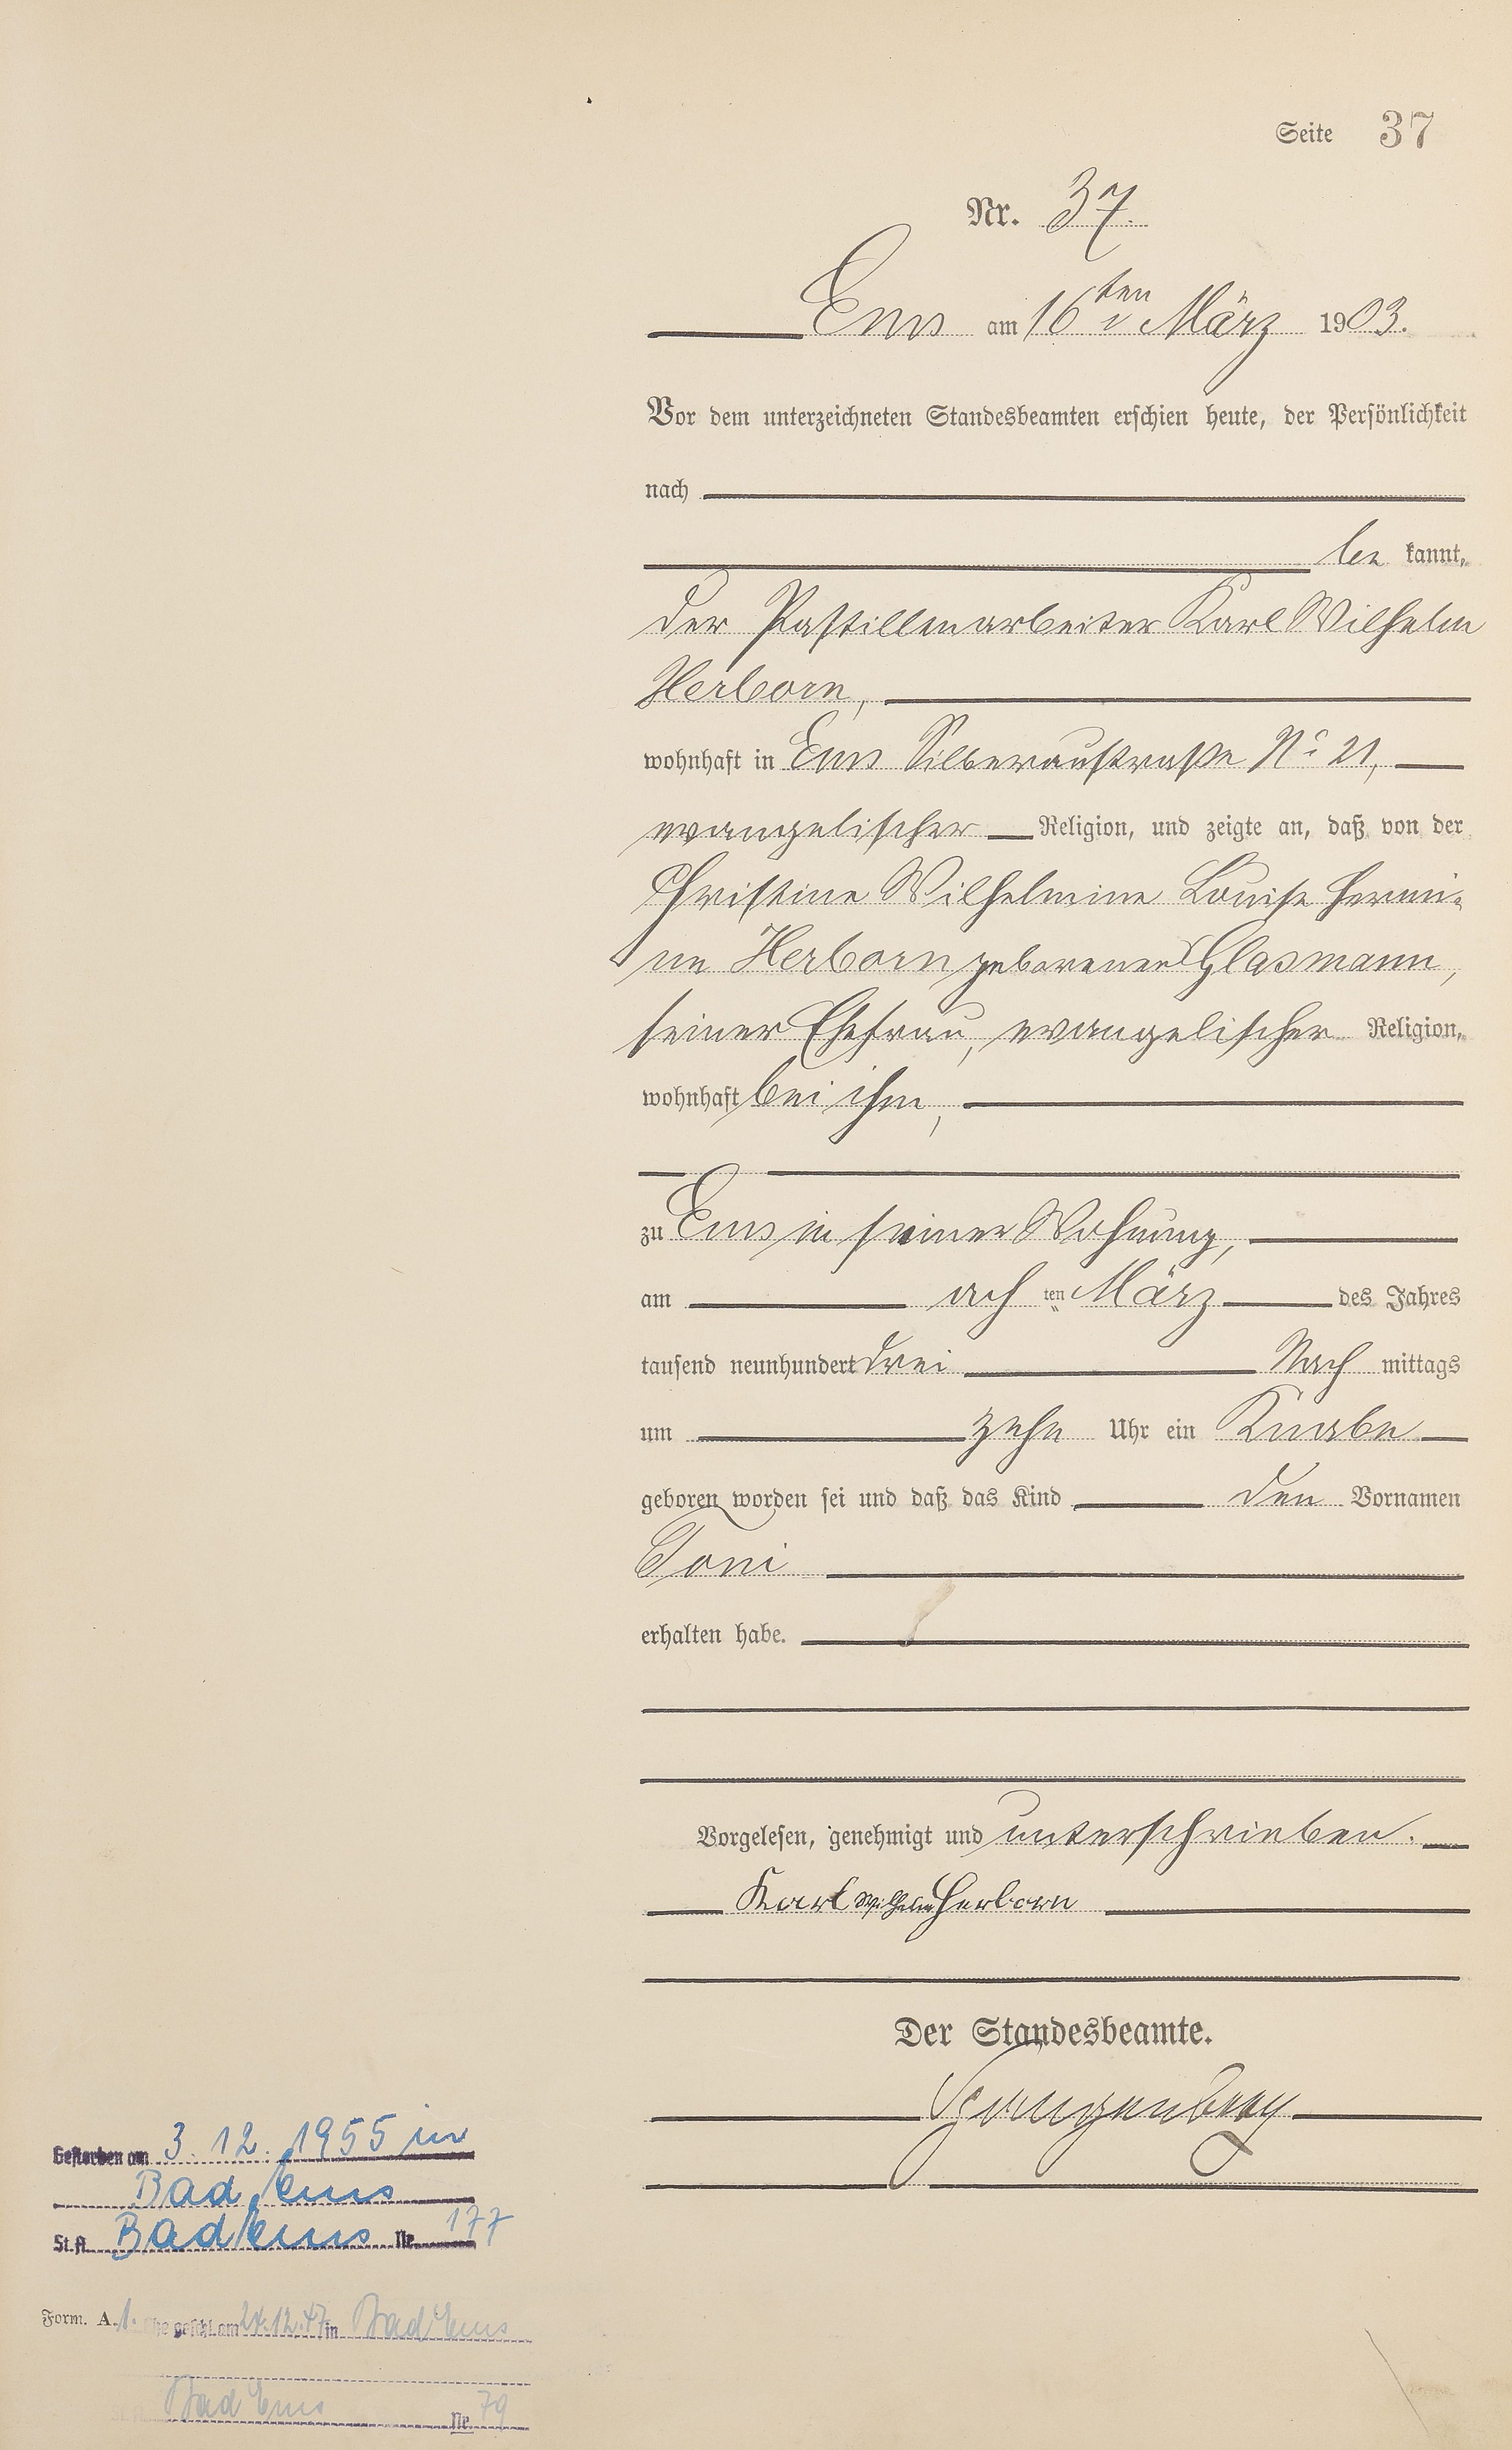 Seite 37
Nr. 37.
Ems am 16ten März 1903.
Vor dem unterzeichneten Standesbeamten erschien heute, der Persönlichkeit
nach
be kannt,
der Pastillenarbeiter Karl Wilhelm
Herborn,
wohnhaft in Ems Silberaustraße No 21,
evangelischer Religion, und zeigte an, daß von der
Christine Wilhelmine Louise Hermi-
ne Herborn geborenen Glasmann,
seiner Ehefrau, evangelischer Religion,
wohnhaft bei ihm,
zu Ems in seiner Wohnung,
am ach ten März des Jahres
tausend neunhundert drei Nach mittags
um zehn Uhr ein Knabe
geboren worden sei und daß das Kind den Vornamen
Toni
erhalten habe.
Vorgelesen, genehmigt und unterschrieben.
Karl Wilhelm Herborn
Der Standesbeamte.
Gestorben am 3.12.1955 in
Bad Ems
St.A. Bad Ems Nr. 177
Form. A. 1. Ehe geschl. am 24.12.47 in Bad Ems
Bad Ems Nr. 79